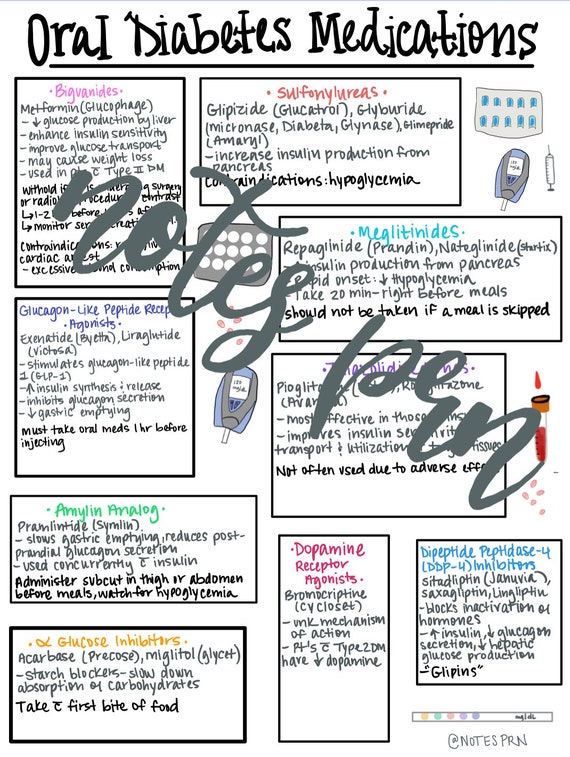 Oral Diabetes Medications
• Biguanides •
Metformin (Glucophage)
- ↓ glucose production by liver
- enhance insulin sensitivity
- improve glucose transport
- may cause weight loss
- used in c̄ Type II DM
surgery
or contrast
before
↳ monitor
contraindications:
cardiac
- excessive consumption
• Sulfonylureas •
Glipizide (Glucatrol), Glyburide
(micronase, Diabeta, Glynase), Glimepride
(Amaryl)
- increase insulin production from
pancreas
contraindications: hypoglycemia
• Meglitinides •
Repaglinide (Prandin), Nateglinide (Starlix)
insulin production from pancreas
- Rapid onset: ↓ Hypoglycemia
- Take 20 min - right before meals
should not be taken if a meal is skipped
Glucagon-Like Peptide
• Agonists •
Exenatide (Byetta), Liraglutide
(Victosa)
- stimulates glucagon-like peptide
1 (GLP-1)
- ↑ insulin synthesis & release
- inhibits glucagon secretion
- ↓ gastric emptying
must take oral meds 1 hr before
injecting
(Avan
- most effective in those
- improves insulin
transport & utilization tissues
Not often used due to adverse
• Amylin Analog •
Pramlintide (Symlin)
- slows gastric emptying, reduces post-
prandial glucagon secretion
- used concurrently c̄ insulin
Administer subcut in thigh or abdomen
before meals, watch for hypoglycemia
• Dopamine
Receptor
Agonists •
Bromocriptine
(Cycloset)
- unk mechanism
of action
- Pt's c̄ Type 2 DM
have ↓ dopamine
Dipeptide Peptidase-4
(DDP-4) Inhibitors
sitadliptin (Januvia),
saxagliptin, Lingliptin
- blocks inactivation of
hormones
- ↑ insulin, ↓ glucagon
secretion, ↓ hepatic
glucose production
- "Glipins"
• α Glucose Inhibitors •
Acarbase (Precose), miglitol (glycet)
- starch blockers - slow down
absorption of carbohydrates
Take c̄ first bite of food
mg/dL
@NOTESPRN
notes prn